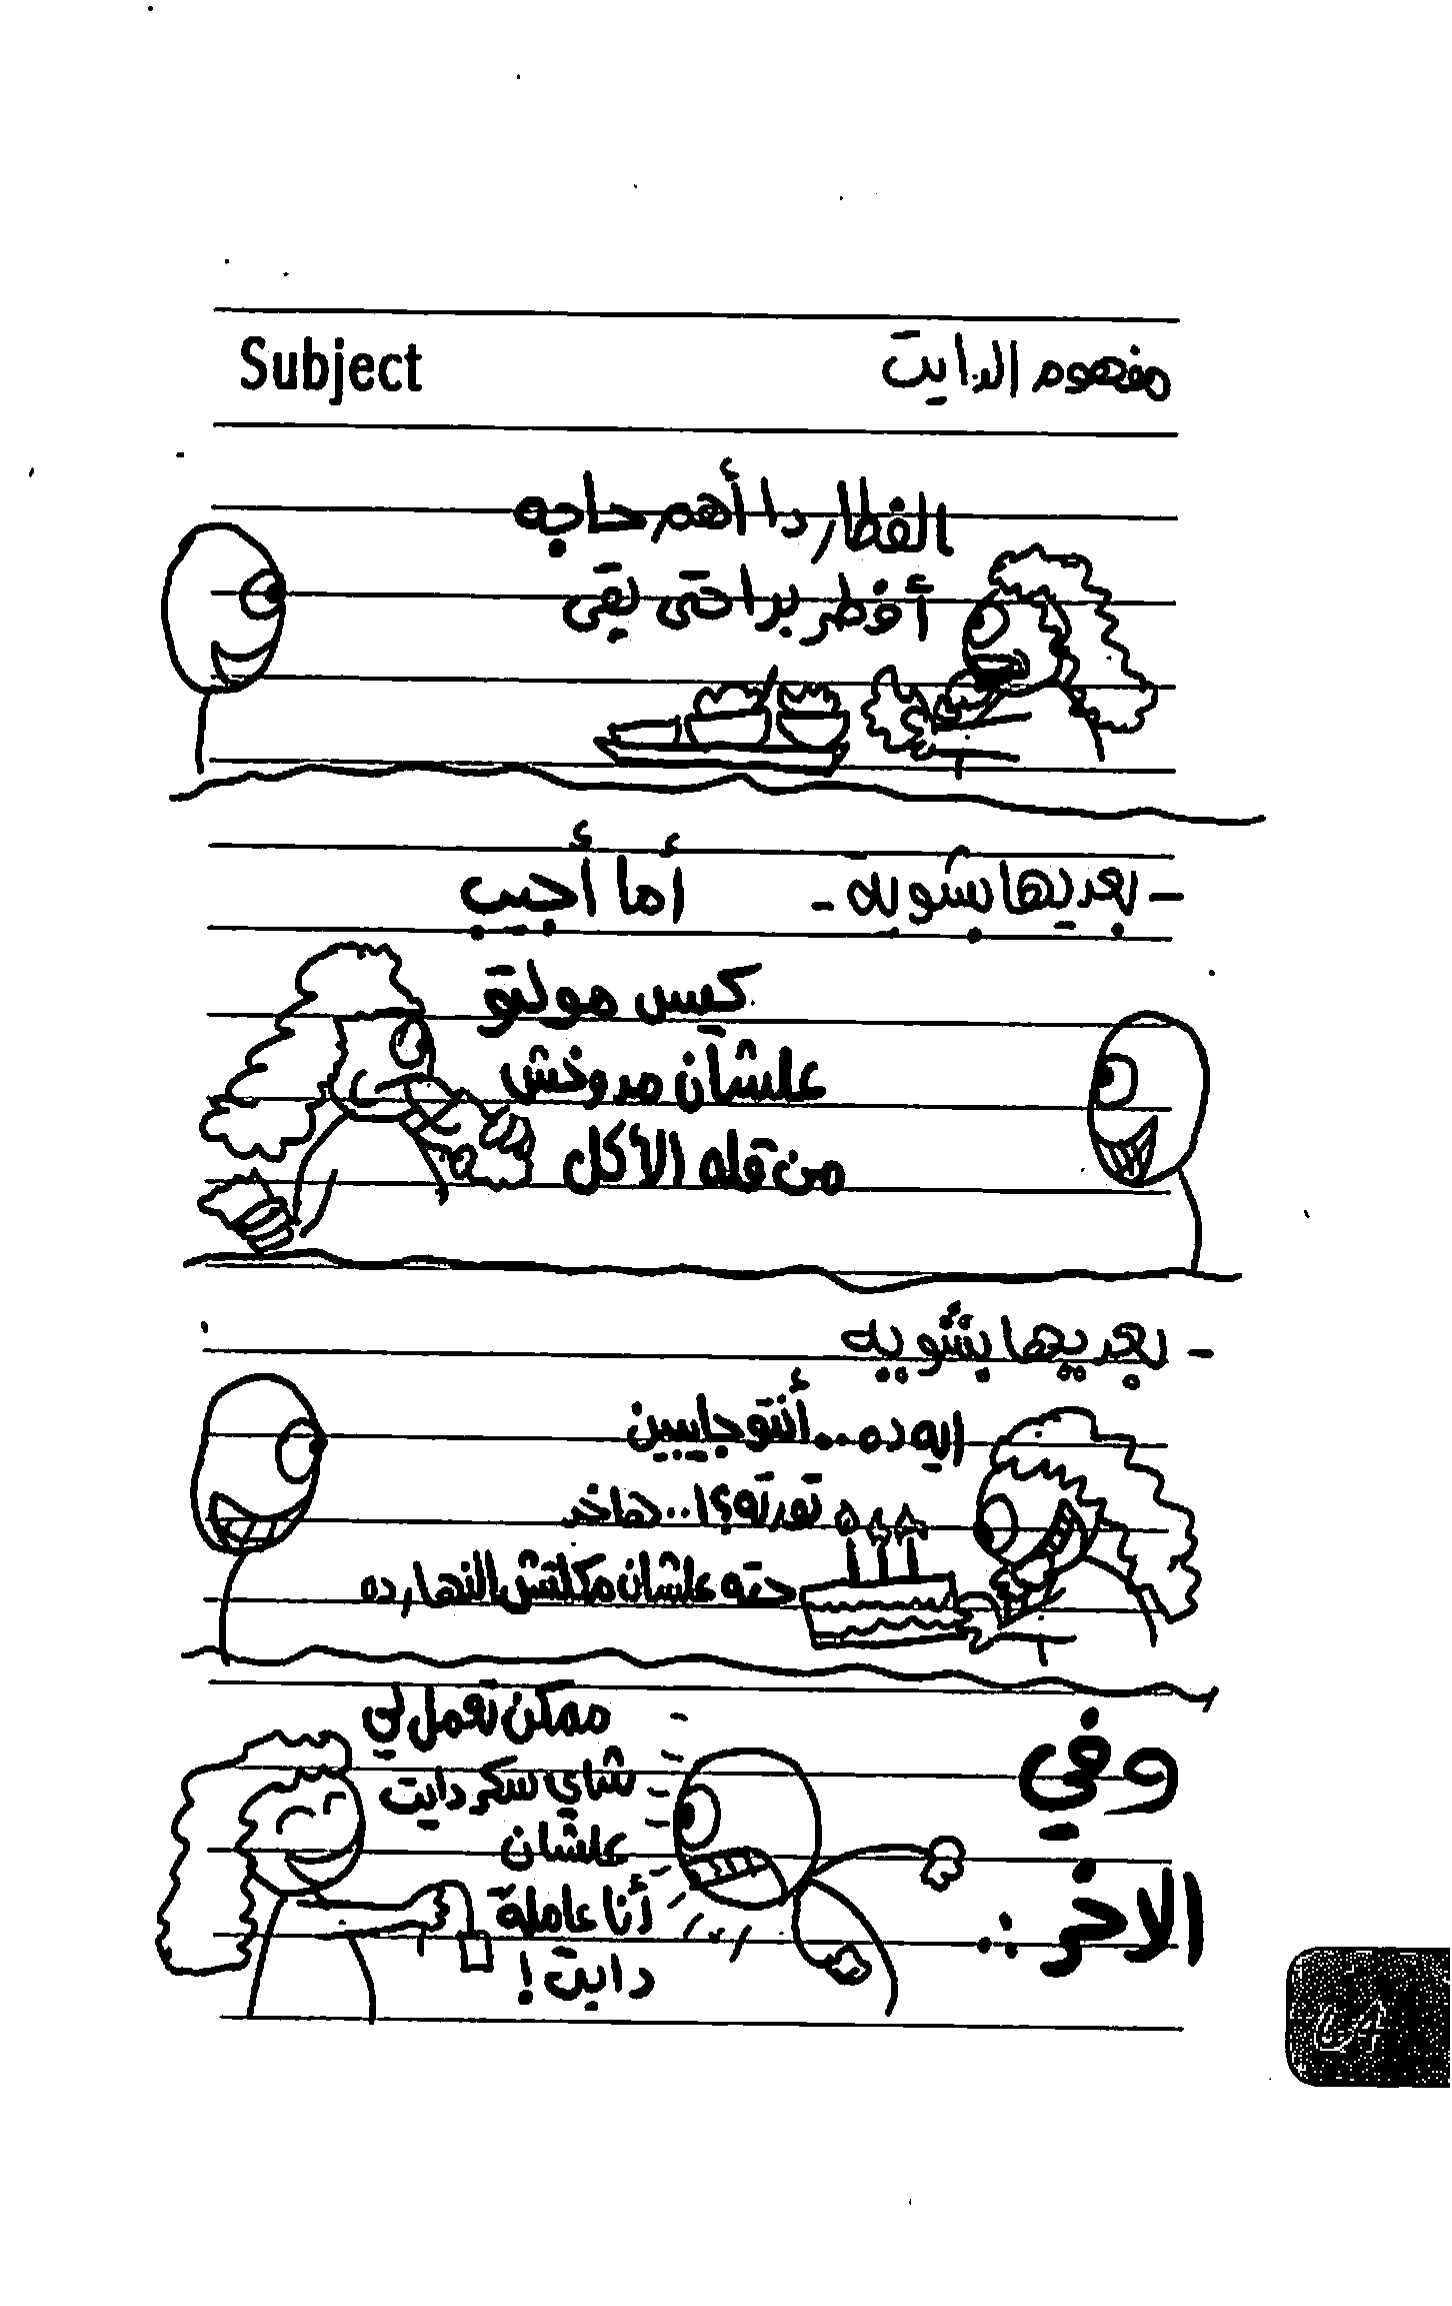 Subject
مفهوم الدايت
الفطار دا أهم حاجه
أفطر براحتي بقى
- بعديها بشويه -
أما أجيب
كيس مولتو
علشان مدوخش
من قلة الأكل
- بعديها بشويه
ايه ده...أنتو جايبين
تورته؟!..هاخد
حته علشان مكلتش النهارده
وفي
الآخر..
ممكن تعمل لي
شاي سكر دايت
علشان
أنا عاملة
دايت!